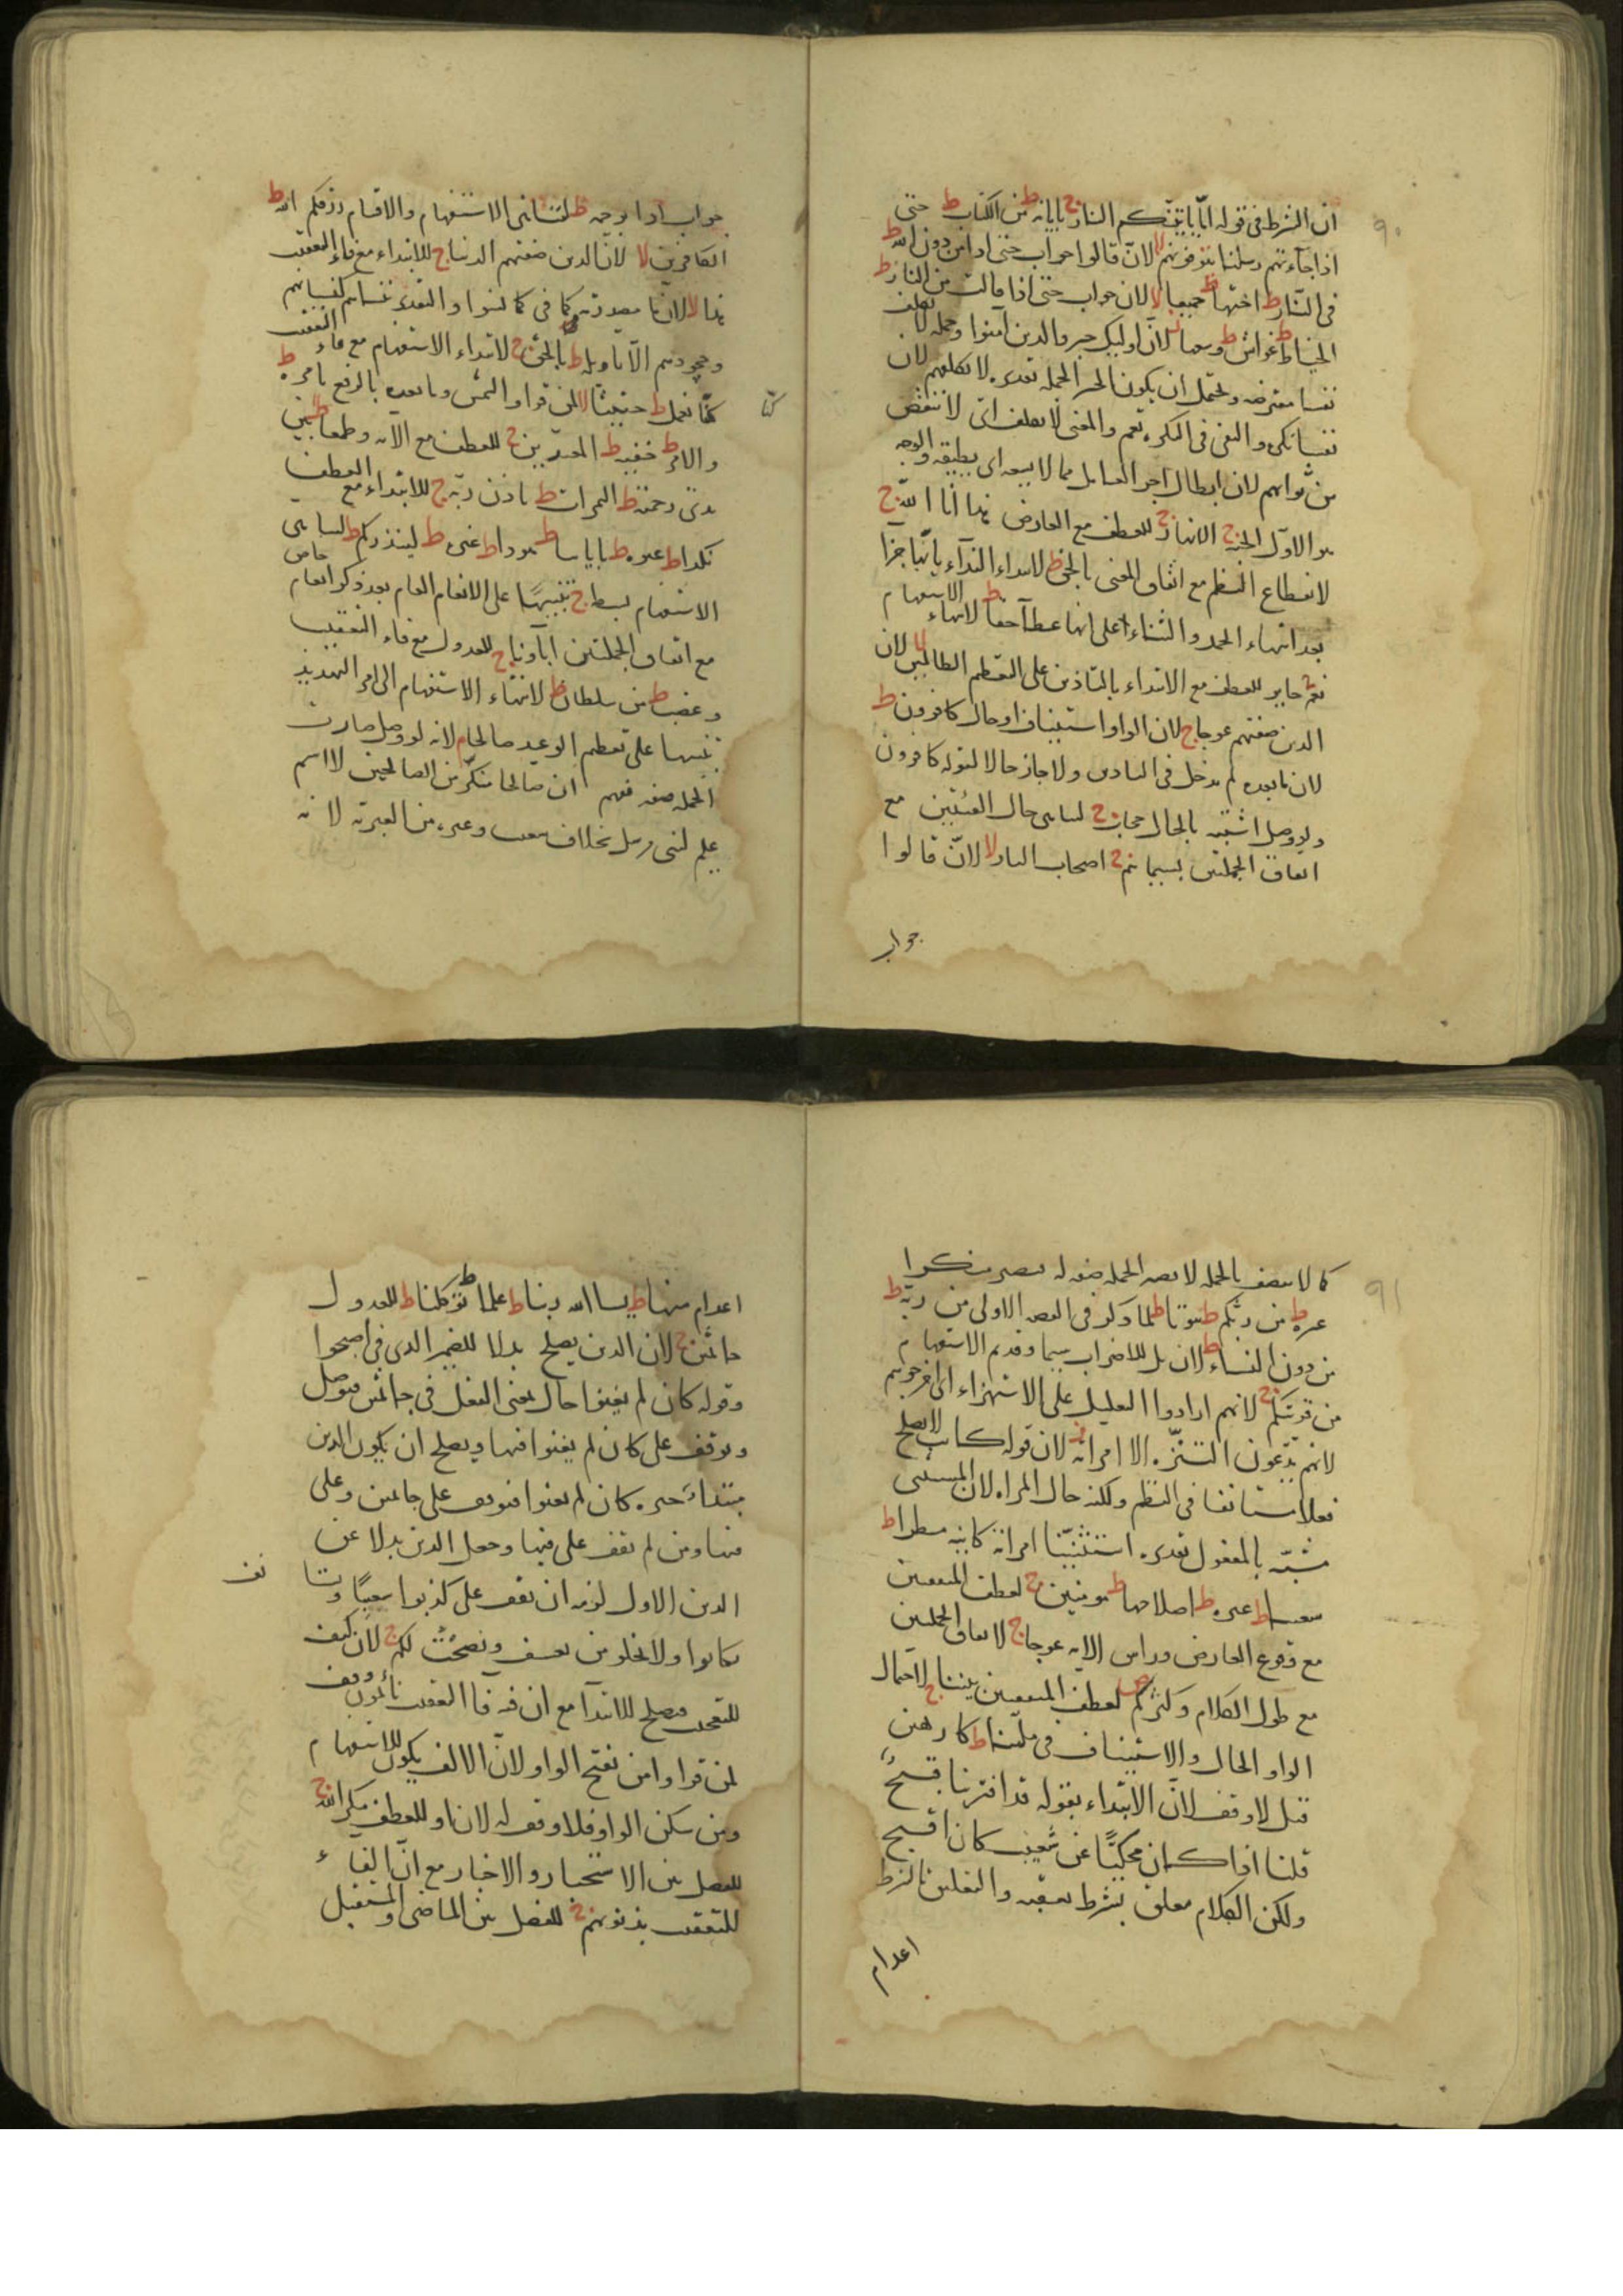 ٩٠
ان الشرط فى قوله امّا ياتينّكم النار ج باياته ط من الكتاب ط حتى
اذا جاءتهم رسلنا يتوفونهم لا لان قالوا جواب حتى اذا من دون الله ط
فى النار ط اختها ط جميعا لا لان جواب حتى اذا قالت من النار ط
الخياط ط غواش ط وسعها لان اوليك خبر والذين آمنوا وجمله لا نكلف
نفسا معترضه ويحتمل ان يكون الخبر الجمله تقديره لا نكلفهم لان
نفسا نكره والنفى فى النكره تعم والمعنى لا نكلف اى لا ننقض
من ثوابهم لان ابطال اجر العامل مما لا يسعه اى يطيقه والوجه
هو الاول الجنه ج الانهار ج للعطف مع العارض هدانا الله ج
لانقطاع النظم مع اتفاق المعنى بالحق ط لابتداء النداء بانها جزا
بعد انتهاء الحمد والثناء على انها عطآ حقا ط لانتهاء الاستفهام
نعم ج جايز للعطف مع الابتداء بالتاذين على التعظيم الظالمين لا لان
الذين صفتهم عوجا ج لان الواو استيناف او حال كافرون ط
لان ما بعده لم يدخل فى التاذين ولا جاز حالا لقوله كافرون
ولو وصل اشتبه بالحال حجاب ج لتناهى حال الفئتين مع
اتفاق الجملتين بسيماهم ج اصحاب النار لا لان قالوا
جواب
جواب اذا برحمه ط لتناهى الاستفهام والاقسام رزقكم الله ط
الكافرين لا لان الذين صفتهم الدنيا ج للابتداء مع فاء التعقيب
هذا لا لان ما مصدريه كما فى كما نسوا والتقدير ننساهم كنسيانهم
وجحودهم الا تاويله ط بالحق ج لابتداء الاستفهام مع فاء التعقيب
كنا نعمل ط حثيثا لا لمن قرا والشمس وما بعده بالرفع بامره ط
كنا
والامر ط خفيه ط المعتدين ج للعطف مع الآيه وطمعا ط بين
يدى رحمته ط الثمرات ط باذن ربه ج للابتداء مع العطف
نكدا ط غيره ط باياتنا ط هودا ط غيره ط لينذركم ط لتناهى
الاستفهام بسطه ج تنبيهًا على الانعام العام بعد ذكر انعام خاص
مع اتفاق الجملتين آباونا ج للعدول مع فاء التعقيب
وغضب ط من سلطان ط لانتهاء الاستفهام الى امر التهديد
تنبيها على تعظيم الوعيد صالحا م لانه لو وصل صارت
الجمله صفه فهم ان صالحا منكّر من الصالحين لا اسم
علم لنبى مرسل بخلاف شعيب وغيره من العبريه لانه
٩١
كما لا يتصف بالجمله لا تصير الجمله صفه له فيصير منكرا
غيره ط من ربكم ط بيوتا ط لما ذكر فى القصه الاولى من ربه ط
من دون النساء ط لان بل للاضراب سيما وقدم الاستفهام
من قريتكم ج لانهم ارادوا التعليل على الاستهزاء اى اخرجوهم
لانهم يدّعون التنزّه الا امراته ز لان قوله كانت لا يصلح
فعلا مستانفا فى النظم ولكنه حال المراه لان المستثنى
مشبّه بالمفعول تقديره استثنيتنا امراته كاينه مطرا ط
شعيبا ط غيره ط اصلاحها ط مومنين ج لعطف المتفقين
مع وقوع العارض وراس الآيه عوجا ج لاتفاق الجملتين
مع طول الكلام وكثركم ص لعطف المتفقين بيننا ج لاحتمال
الواو الحال والاستيناف فى ملتنا ط كارهين
قيل لا وقف لان الابتداء بقوله قد افترينا قبيح
قلنا اذا كان محكيًّا عن شعيب كان اقبح
ولكن الكلام معلق بشرط يعقبه والتعليق بالشرط
اعدام
اعدام منها ط يشا الله ربنا ط علما ط توكلنا ط للعدول
جاثمين ج لان الذين يصلح بدلا للضمير الذى فى اصبحوا
وقوله كان لم يغنوا حال لمعنى الفعل فى جاثمين فيوصل
ويوقف على كان لم يغنوا فيها ويصلح ان يكون الذين
مبتداء خبره كان لم يغنوا فيوقف على جاثمين وعلى
فيها ومن لم يقف على فيها وجعل الذين بدلا عن
الذين الاول لزمه ان يقف على كذبوا شعيبًا
كانوا ولا يخلو من تعسف ونصحْت لكم ج لان كيف
للتعجب فيصلح للابتدآ مع ان فيه فا التعقيب نائمون وقف
لمن قرا وامن بفتح الواو لان الالف يكون للاستفهام
ومن سكن الواو فلا وقف له لان او للعطف مكر الله ج
للفصل بين الاستخبار والاخبار مع ان الفاء
للتعقيب بذنوبهم ج للفصل بين الماضى والمستقبل